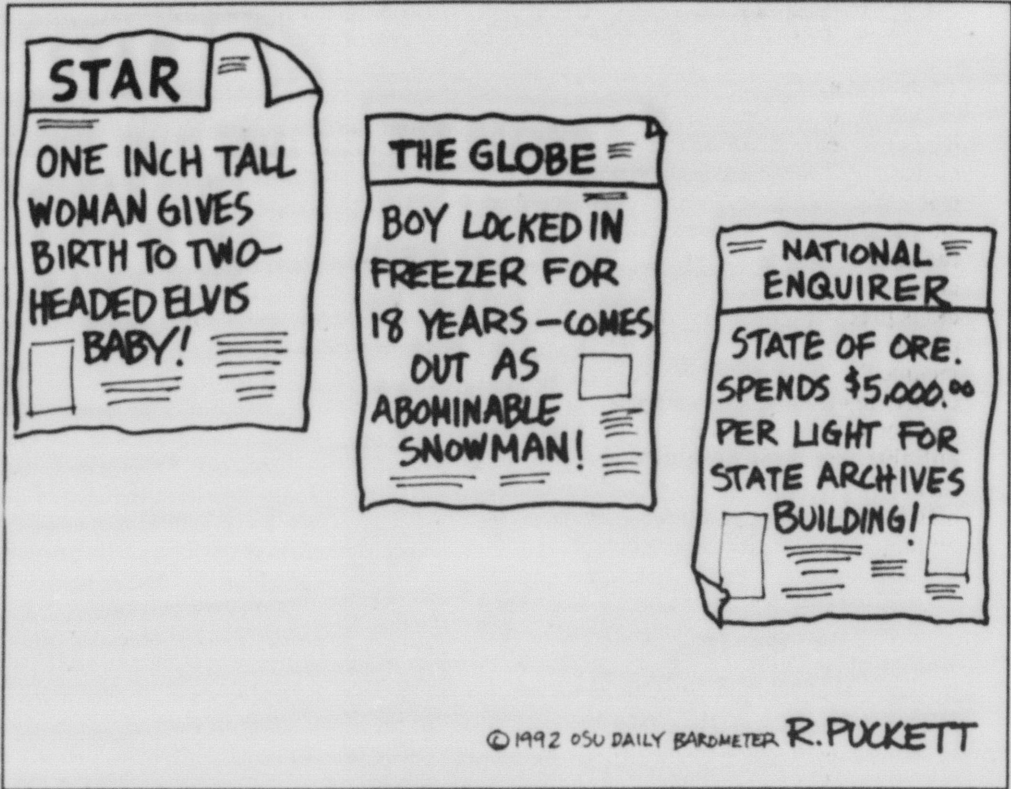 STAR
ONE INCH TALL
WOMAN GIVES
BIRTH TO TWO-
HEADED ELVIS
BABY!
THE GLOBE
BOY LOCKED IN
FREEZER FOR
18 YEARS — COMES
OUT AS
ABOMINABLE
SNOWMAN!
NATIONAL
ENQUIRER
STATE OF ORE.
SPENDS $5,000.00
PER LIGHT FOR
STATE ARCHIVES
BUILDING!
© 1992 OSU DAILY BAROMETER R. PUCKETT